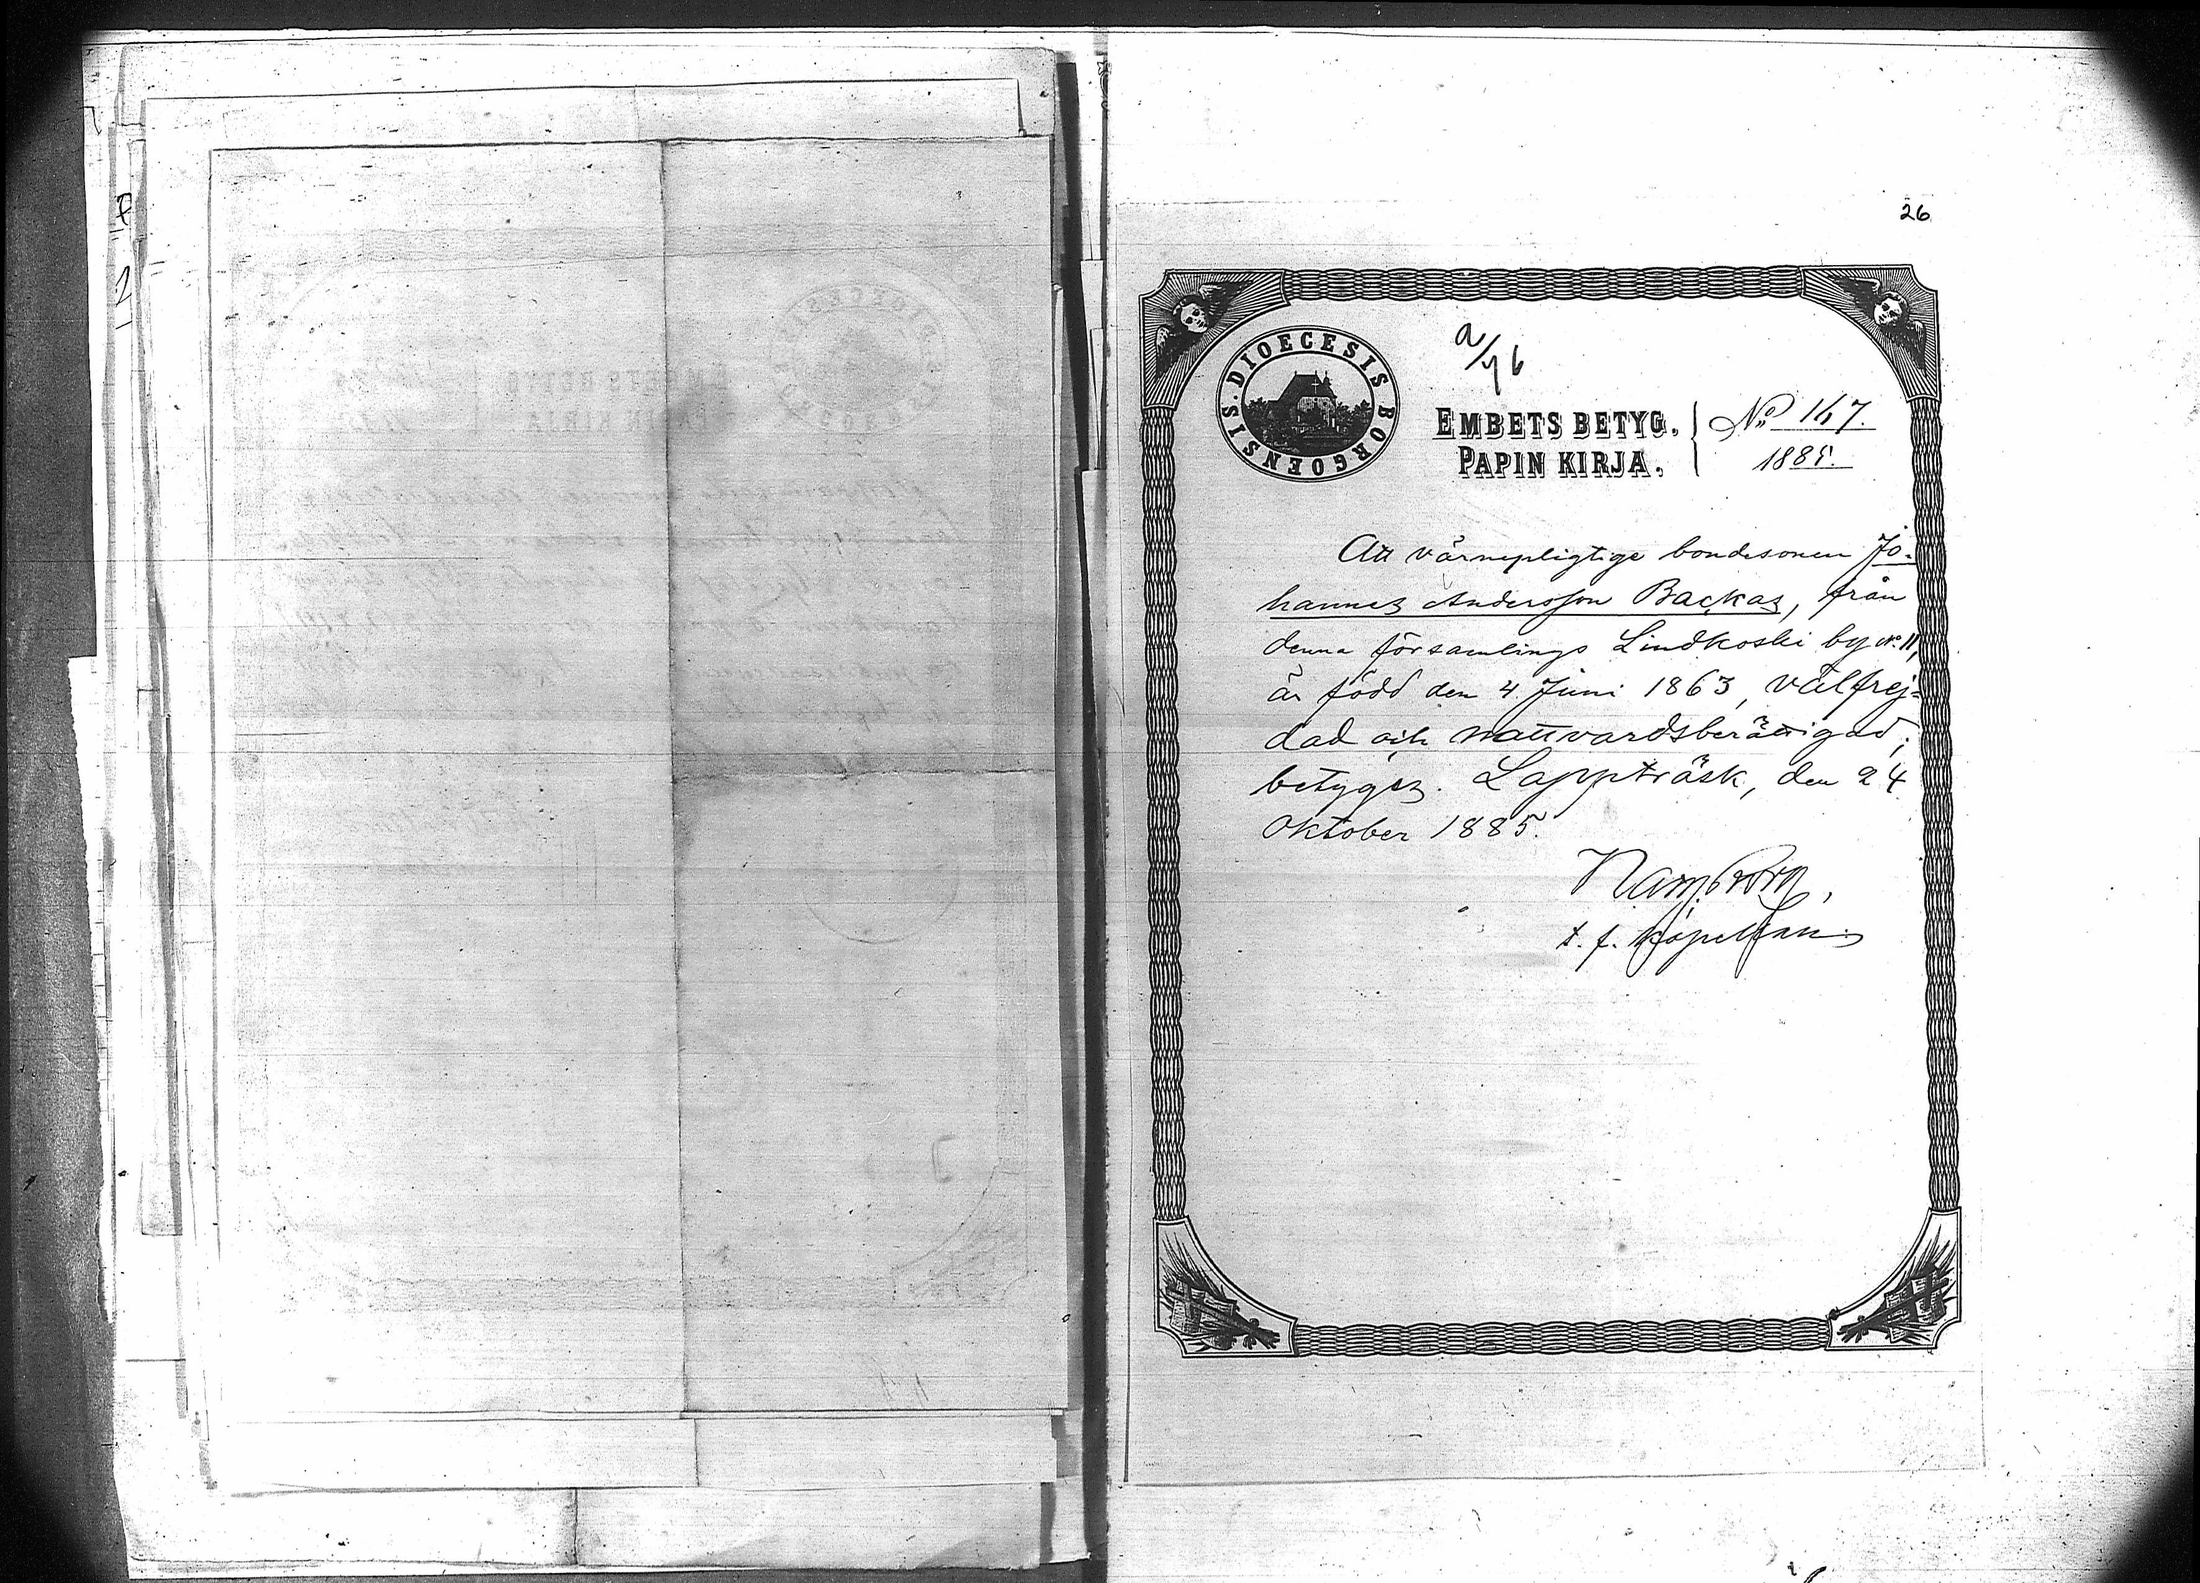 26
DIOECESIS BORGOENSIS.
EMBETS BETYG.
PAPIN KIRJA.
No 167.
1885.
Att värnepligtige bondesonen Jo-
hannes Andersson Backas, från
denna församlings Lindkoski by No 11,
är född den 4 Juni 1863, välfrej=
dad och nattvardsberättigad;
betygas. Lappträsk, den 24
Oktober 1885.
t. f. Kapellan.